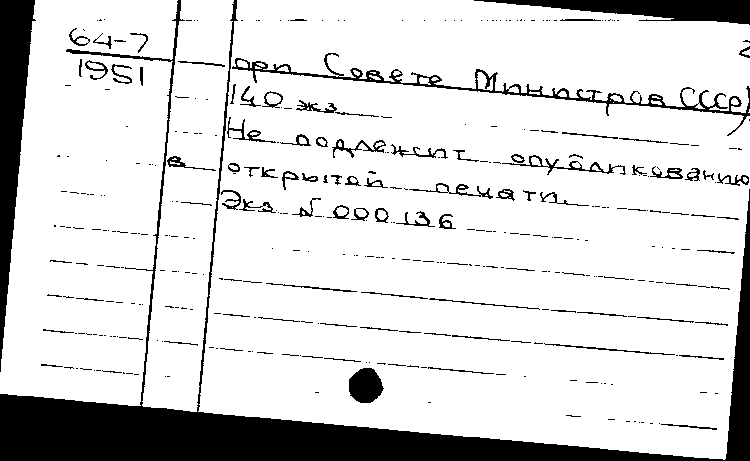 64-7
1951
2
при Совете Министров СССР)
140 экз.
Не подлежит опубликованию
в открытой печати.
Экз № 000136